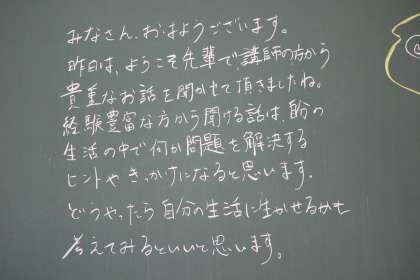 みなさん、おはようございます。
昨日は、ようこそ先輩で講師の方から
貴重なお話を聞かせて頂きましたね。
経験豊富な方から聞ける話は、自分の
生活の中で何か問題を解決する
ヒントやきっかけになると思います。
どうやったら自分の生活に生かせるかも
考えてみるといいと思います。